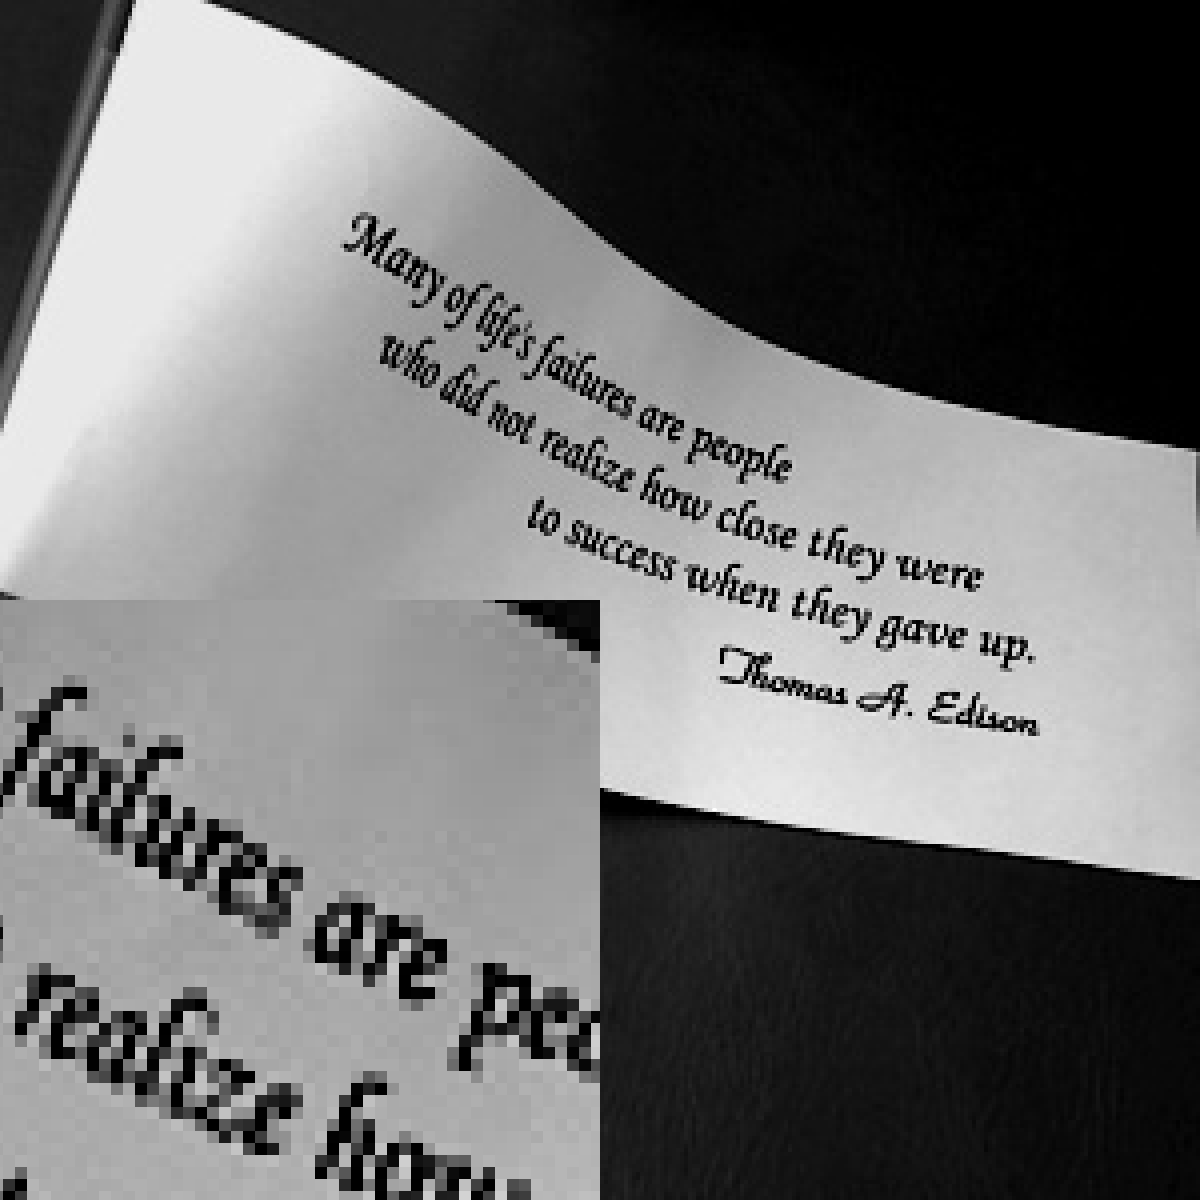 Many of life's failures are people
who did not realize how close they were
to success when they gave up.
Thomas A. Edison
failures are peo
realize how